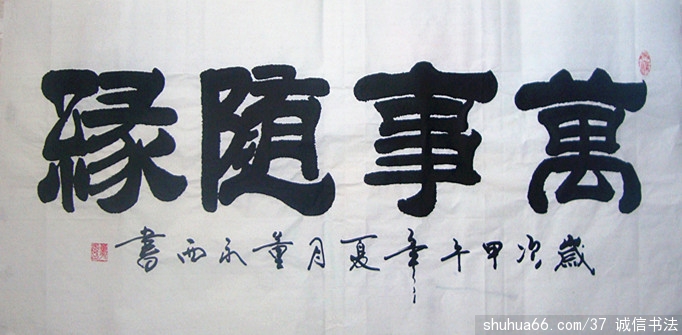 萬事随縁
歲次甲午年夏月董永西書
shuhua66.com/37 诚信书法